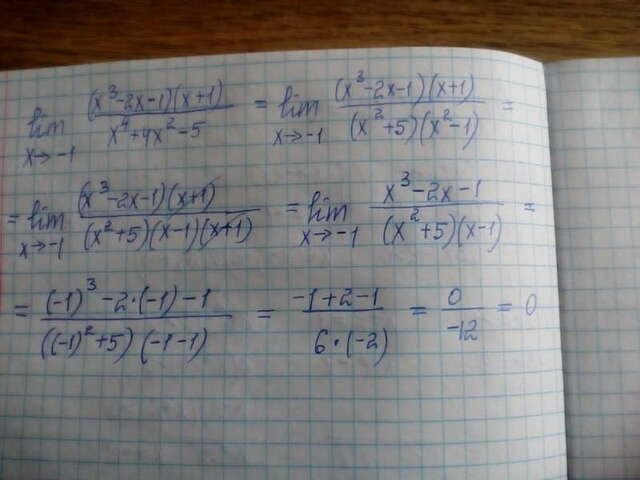 lim x→-1 (x³-2x-1)(x+1) / x⁴+4x²-5 = lim x→-1 (x³-2x-1)(x+1) / (x²+5)(x²-1) =
= lim x→-1 (x³-2x-1)(x+1) / (x²+5)(x-1)(x+1) = lim x→-1 x³-2x-1 / (x²+5)(x-1) =
= (-1)³-2·(-1)-1 / ((-1)²+5)(-1-1) = -1+2-1 / 6·(-2) = 0 / -12 = 0